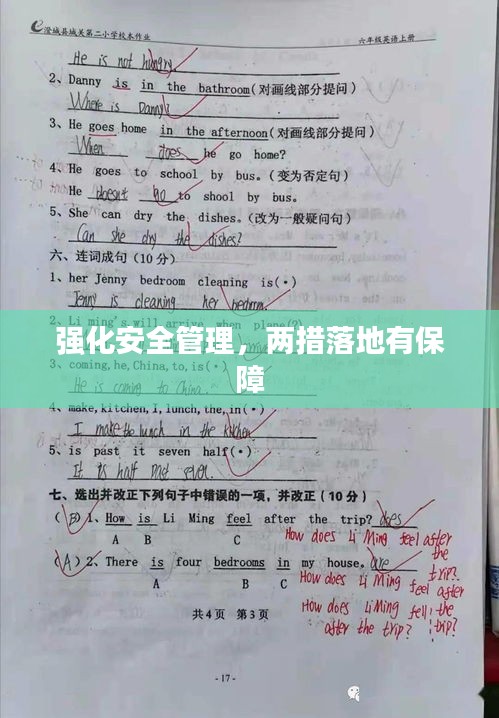 澄城县城关第二小学校本作业 六年级英语上册
He is not hungry
2、Danny is in the bathroom(对画线部分提问)
Where is Danny?
3、He goes home in the afternoon(对画线部分提问)
When does he go home?
4、He goes to school by bus。(变为否定句)
He doesn't go to shool by bus.
5、She can dry the dishes。(改为一般疑问句)
Can she dry the dishes?
六、连词成句(10分)
1、her Jenny bedroom cleaning is(•)
Jenny is cleaning her bedroom.
2、Li ming's will arrive when plane(?)
强化安全管理，两措落地有保
障
3、coming,he,China,to,is(•)
He is coming to China.
4、make,kitchen,I,lunch,the,in(•)
I make the lunch in the kitchen
5、is past it seven half(•)
It is half past seven.
七、选出并改正下列句子中错误的一项，并改正(10分)
(B)1、How is Li Ming feel after the trip? does
A B C
How does Li Ming feel after the trip?
(A)2、There is four bedrooms in my house。are
A B C
How does Li Ming feel after the trip?
How does Li Ming fell after the trip?
共4页 第3页
-17-